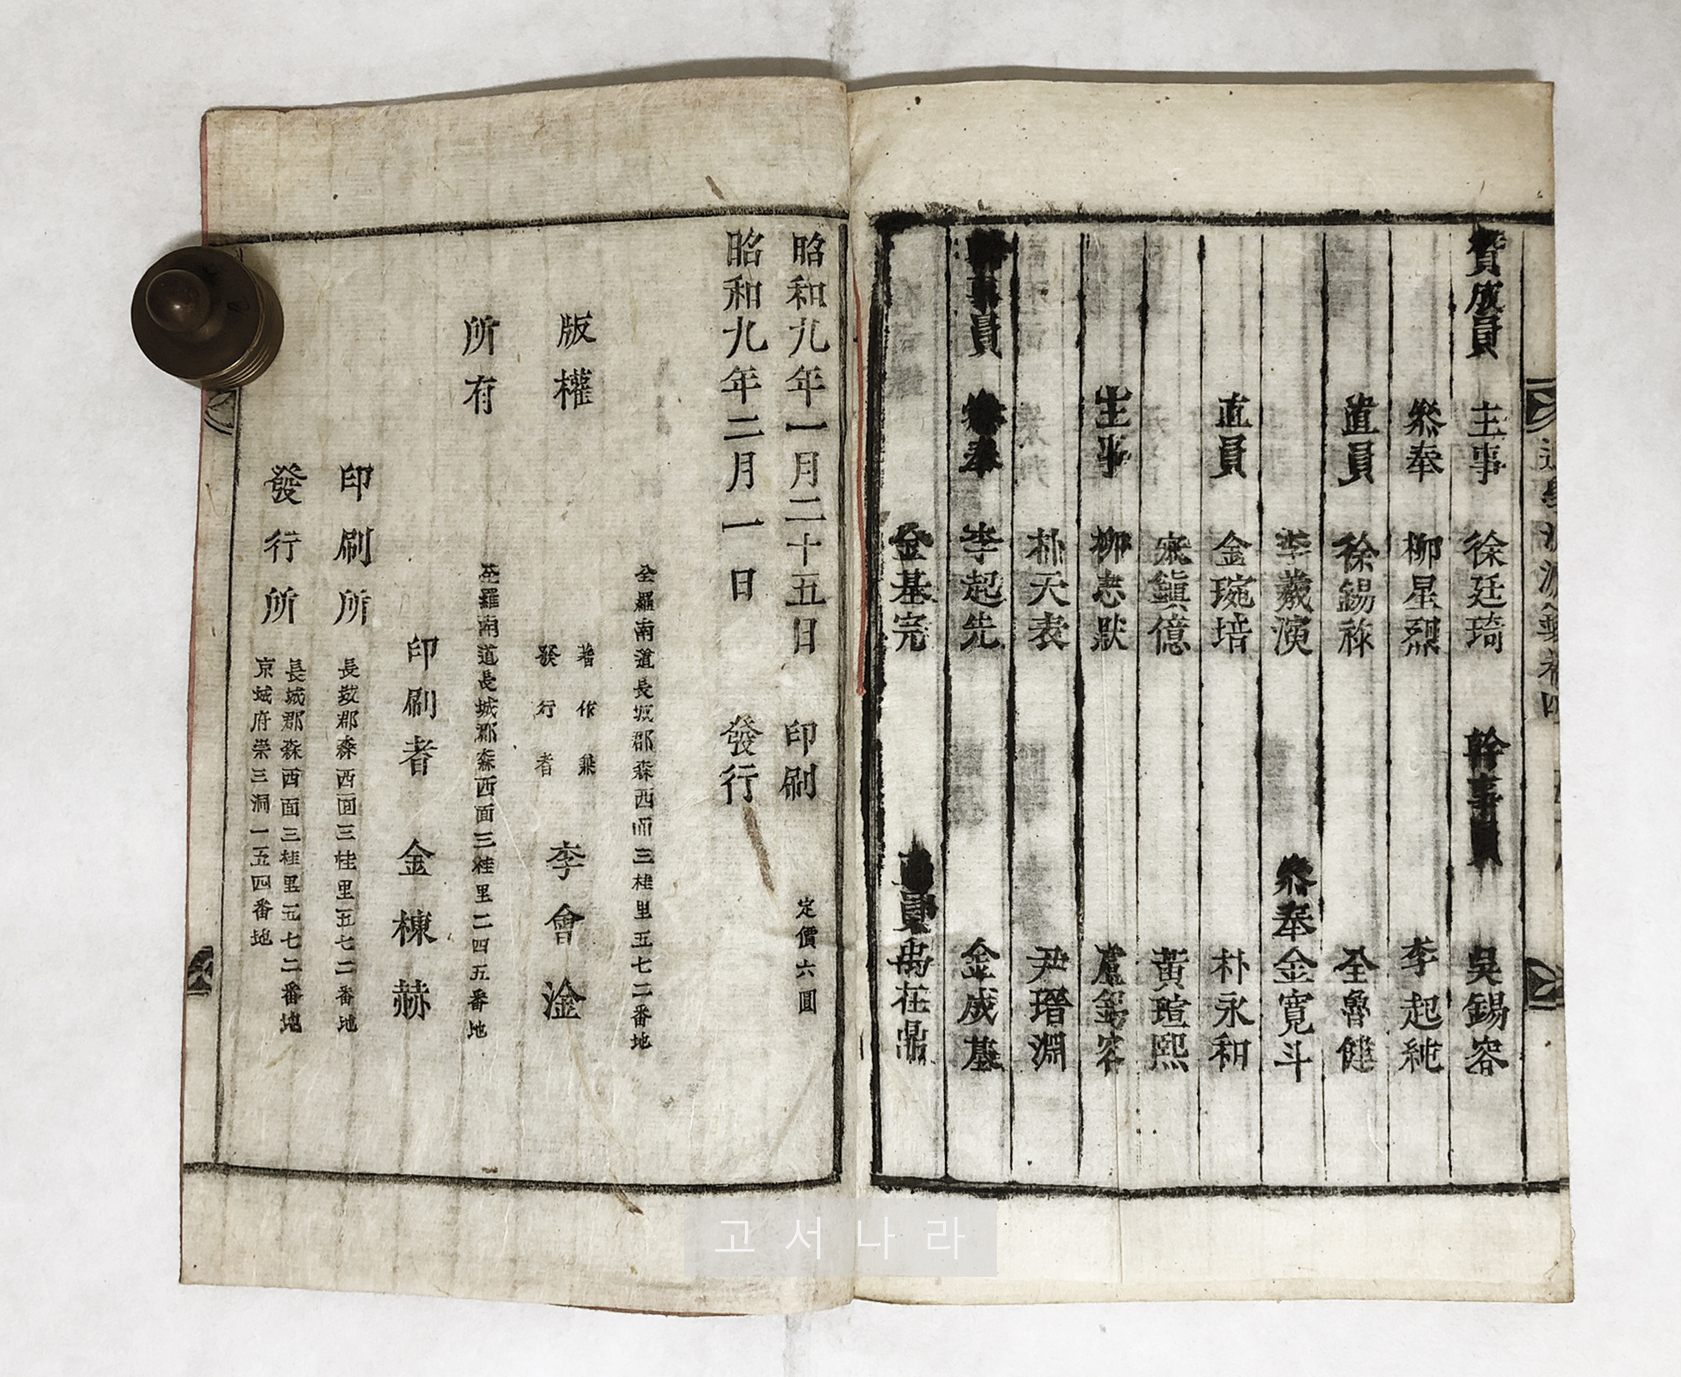 贊成員 主事 徐廷琦 幹事員 吳錫容
叅奉 柳星烈 李起純
直員 徐錫祿 全魯健
李羲演 叅奉 金寬斗
直員 金琬培 朴永和
鎭億 黃瑄熙
主事 柳志默 盧錫容
朴天表 尹瑨淵
幹事員 叅奉 李起先 金成基
金基完 直員 禹在鼎
昭和九年一月二十五日 印刷
昭和九年二月一日 發行
定價六圓
全羅南道長城郡森西面三桂里五七二番地
版權
所有
著作兼
發行者 李會淦
全羅南道長城郡森西面三桂里二四五番地
印刷者 金棟赫
印刷所 長城郡森西面三桂里五七二番地
發行所 長城郡森西面三桂里五七二番地
京城府崇三洞一五四番地
고서나라